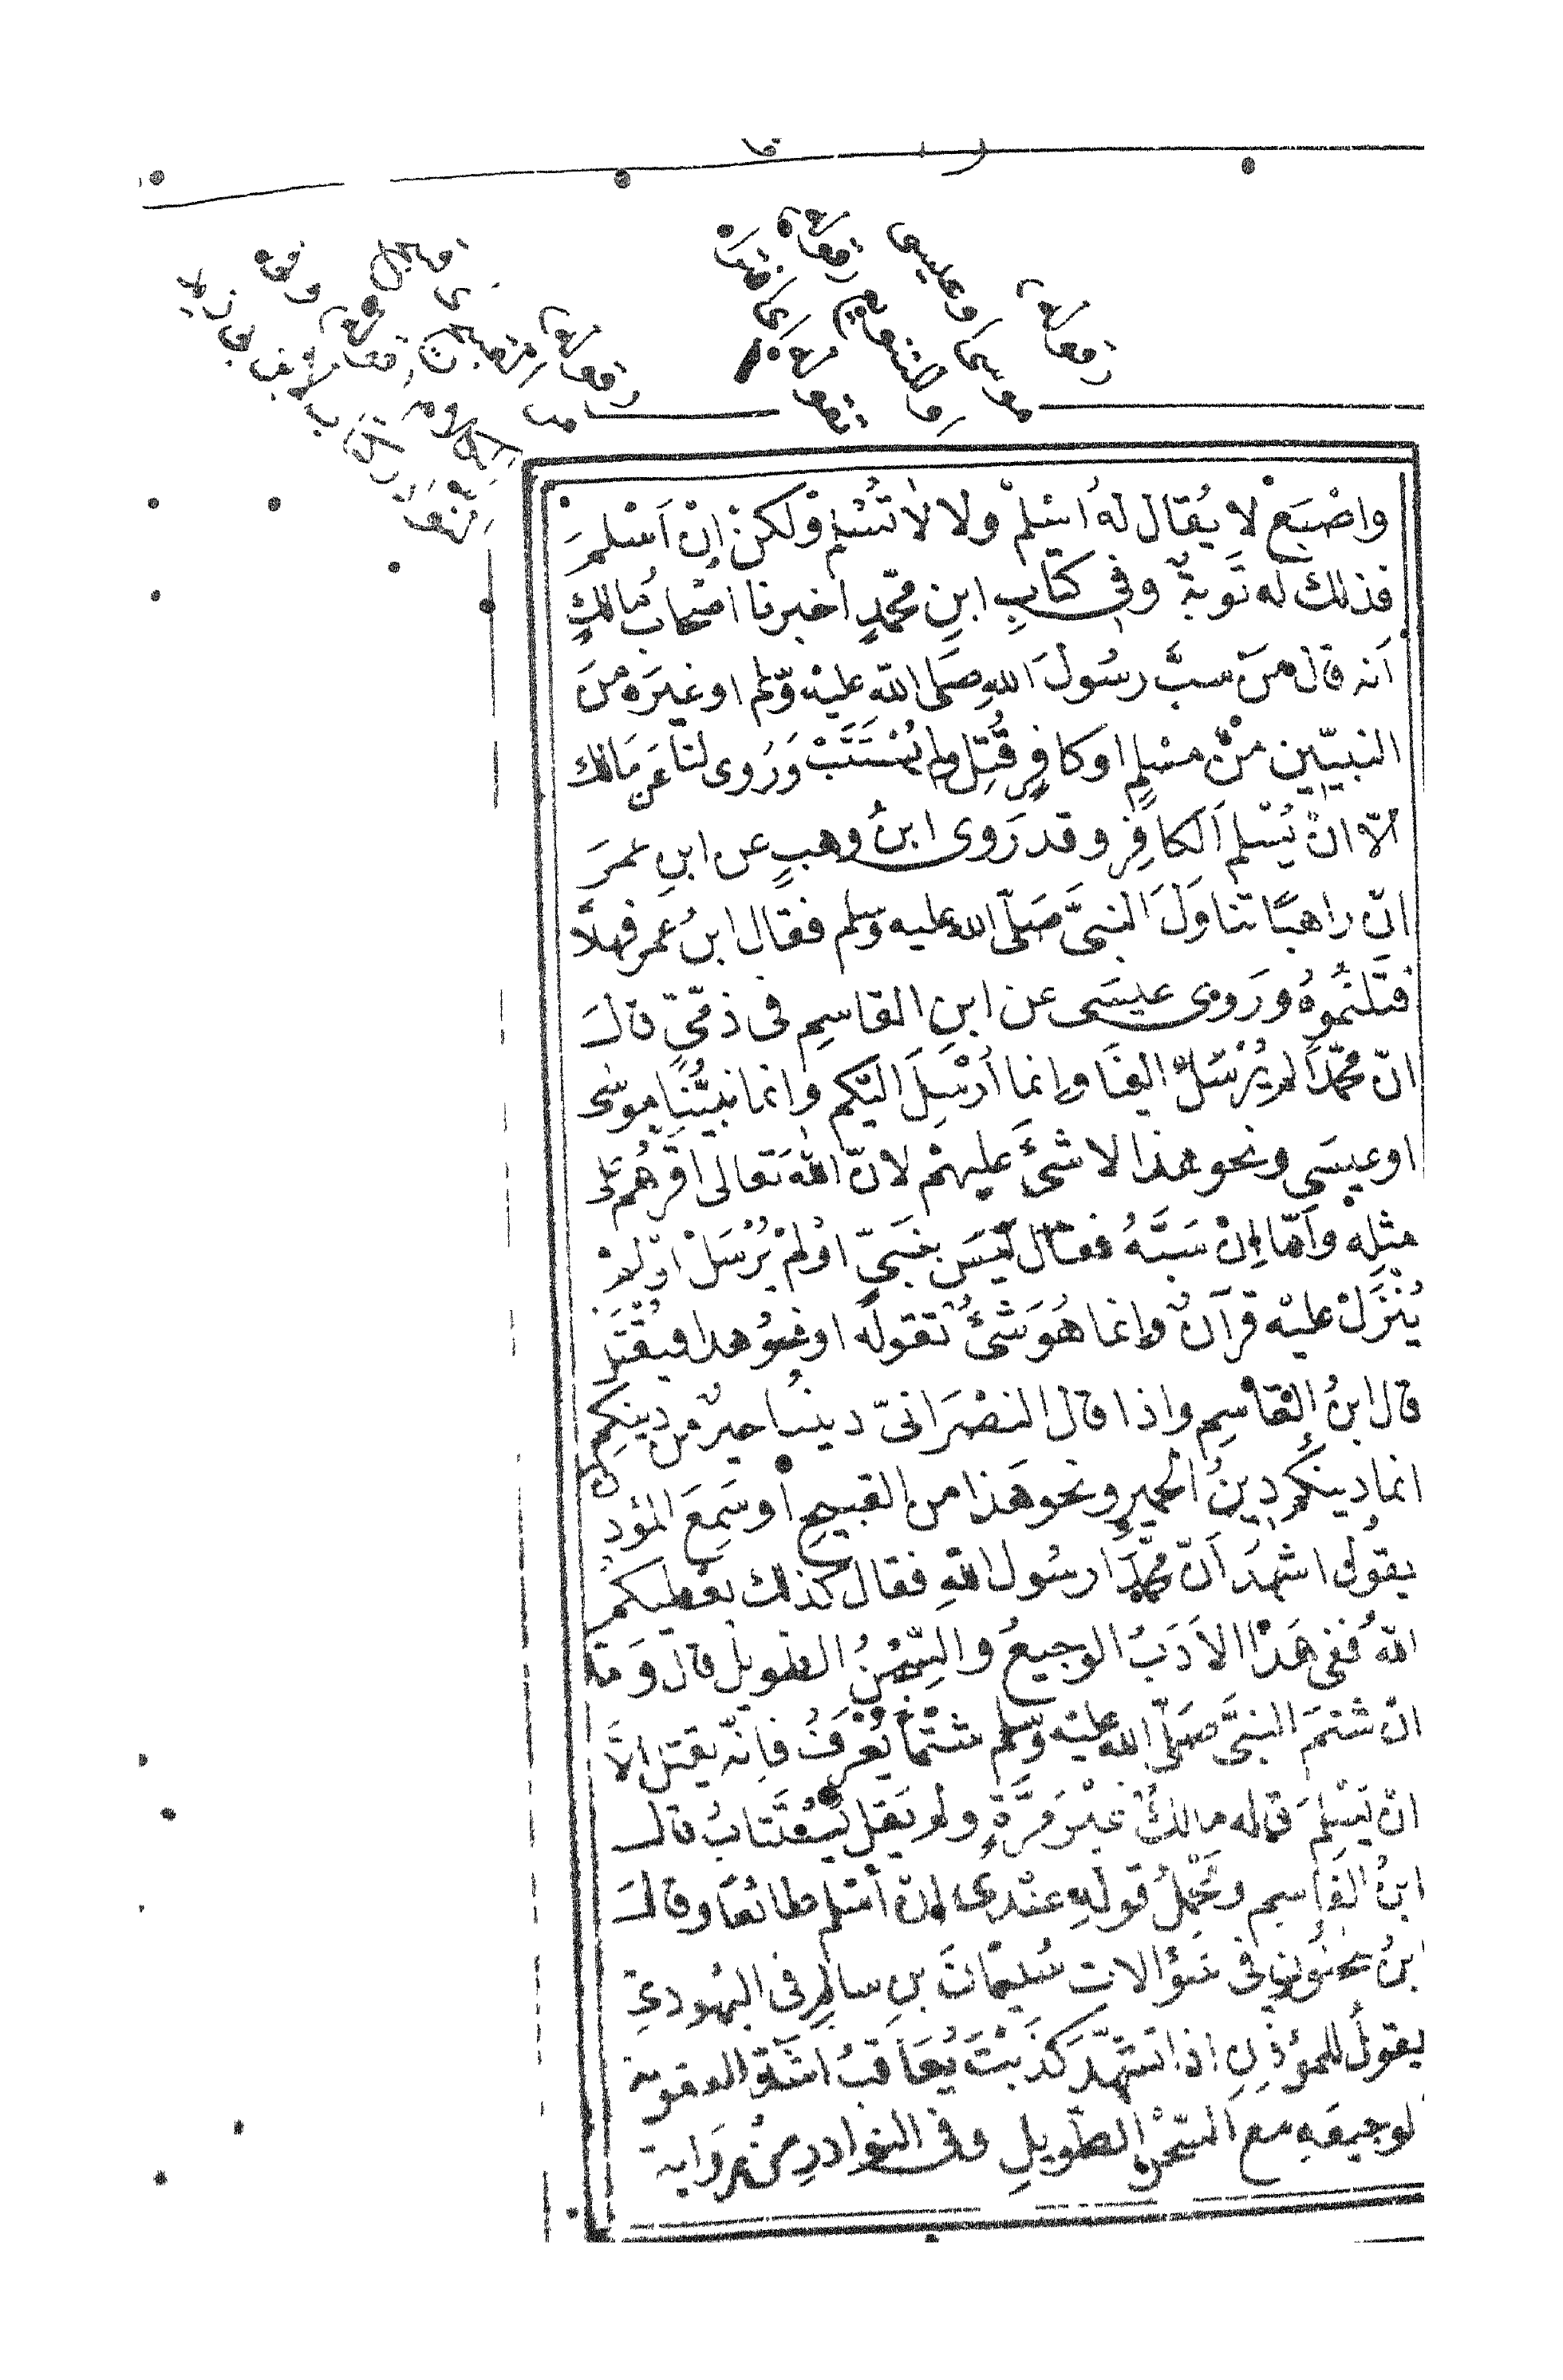 واصْبَغ لا يُقال له اُسْلِمْ ولا لا تُسْلِم ولكن اِنْ اَسْلَمَ
فذلك له تَوبةٌ وفي كتابِ ابنِ محمّدٍ اخبرنا اصْحابُ مالكٍ
اَنه قال مَنْ سبَّ رسُولَ اللهِ صَلى الله عليْه وسّلم او غيرَه منَ
النبيّين منْ مسْلمٍ او كافرٍ قُتِل ولم يُسْتَتَبْ وَرَوى لنا عَن مَالك
الّا انْ يُسْلم اَلكافِر وقد رَوى ابنُ وهبٍ عن ابنِ عمرَ
انّ راهبًا تناوَلَ النبىَّ صَلّى الله عليه وسلم فقال ابنُ عمر فهلّا
قتلتُموهُ ورَوى عيسَى عن ابنِ القاسمِ فى ذمّىٍّ قالَ
انّ محمّدًا لم يُرْسَلْ الينَا وانما اُرْسِلَ اليَكم وانما نبيُّنا موسَى
او عيسَى ونحو هذا لا شىَٔ عليهمْ لانّ اللهَ تعالى اقرَّهُم على
مثلِه وأمّا اِنْ سَبَّهُ فقال ليَسَ بنَبىّ اوْ لمْ يُرْسَلْ اوْ لمْ
يُنْزَلْ عليْه قرآنٌ وانما هُوَ شىْٔ تقولَه او نحوُ هذا فيُقْتَل
قال ابنُ القاسِم واذا قال النصْرَانىّ دينُنا خيرٌ من دينِكم
انما دينكُم دينُ الحَمير ونحو هَذا من القبيحِ أو سَمِعَ المؤذن
يقوُل اشهدُ اَنّ محمّدًا رسُول اللهِ فقال كذلك يعْطيكم
اللهُ ففى هَذا الادَبُ الوجيعُ والسِّجْنُ الطويل قال وَ امَّا
انْ شتمَ النبىَّ صَلّى الله عليْه وسّلم شتْمًا يُعْرَفُ فانّه يقتل الّا
انْ يُسْلِمَ قاله مالكٌ غيْرَ مَرَّةٍ ولم يَقل يُسْتَتابُ قالَ
ابنُ القاسِم ومَحْمِلُ قولِه عنْدى اِن أسْلم طائعًا وقالَ
ابنُ سُحْنُونٍ فى سُؤالاتِ سُليمَانَ بنِ سالمٍ فى اليَهُودىِّ
يقولُ للمؤذِنِ اذا تشهّدَ كذَبْتَ يُعَاقبُ العقوبة
لوجيعَةِ مع السّجْنِ الطّويلِ وفى النوادرِ منْ رِوَاية